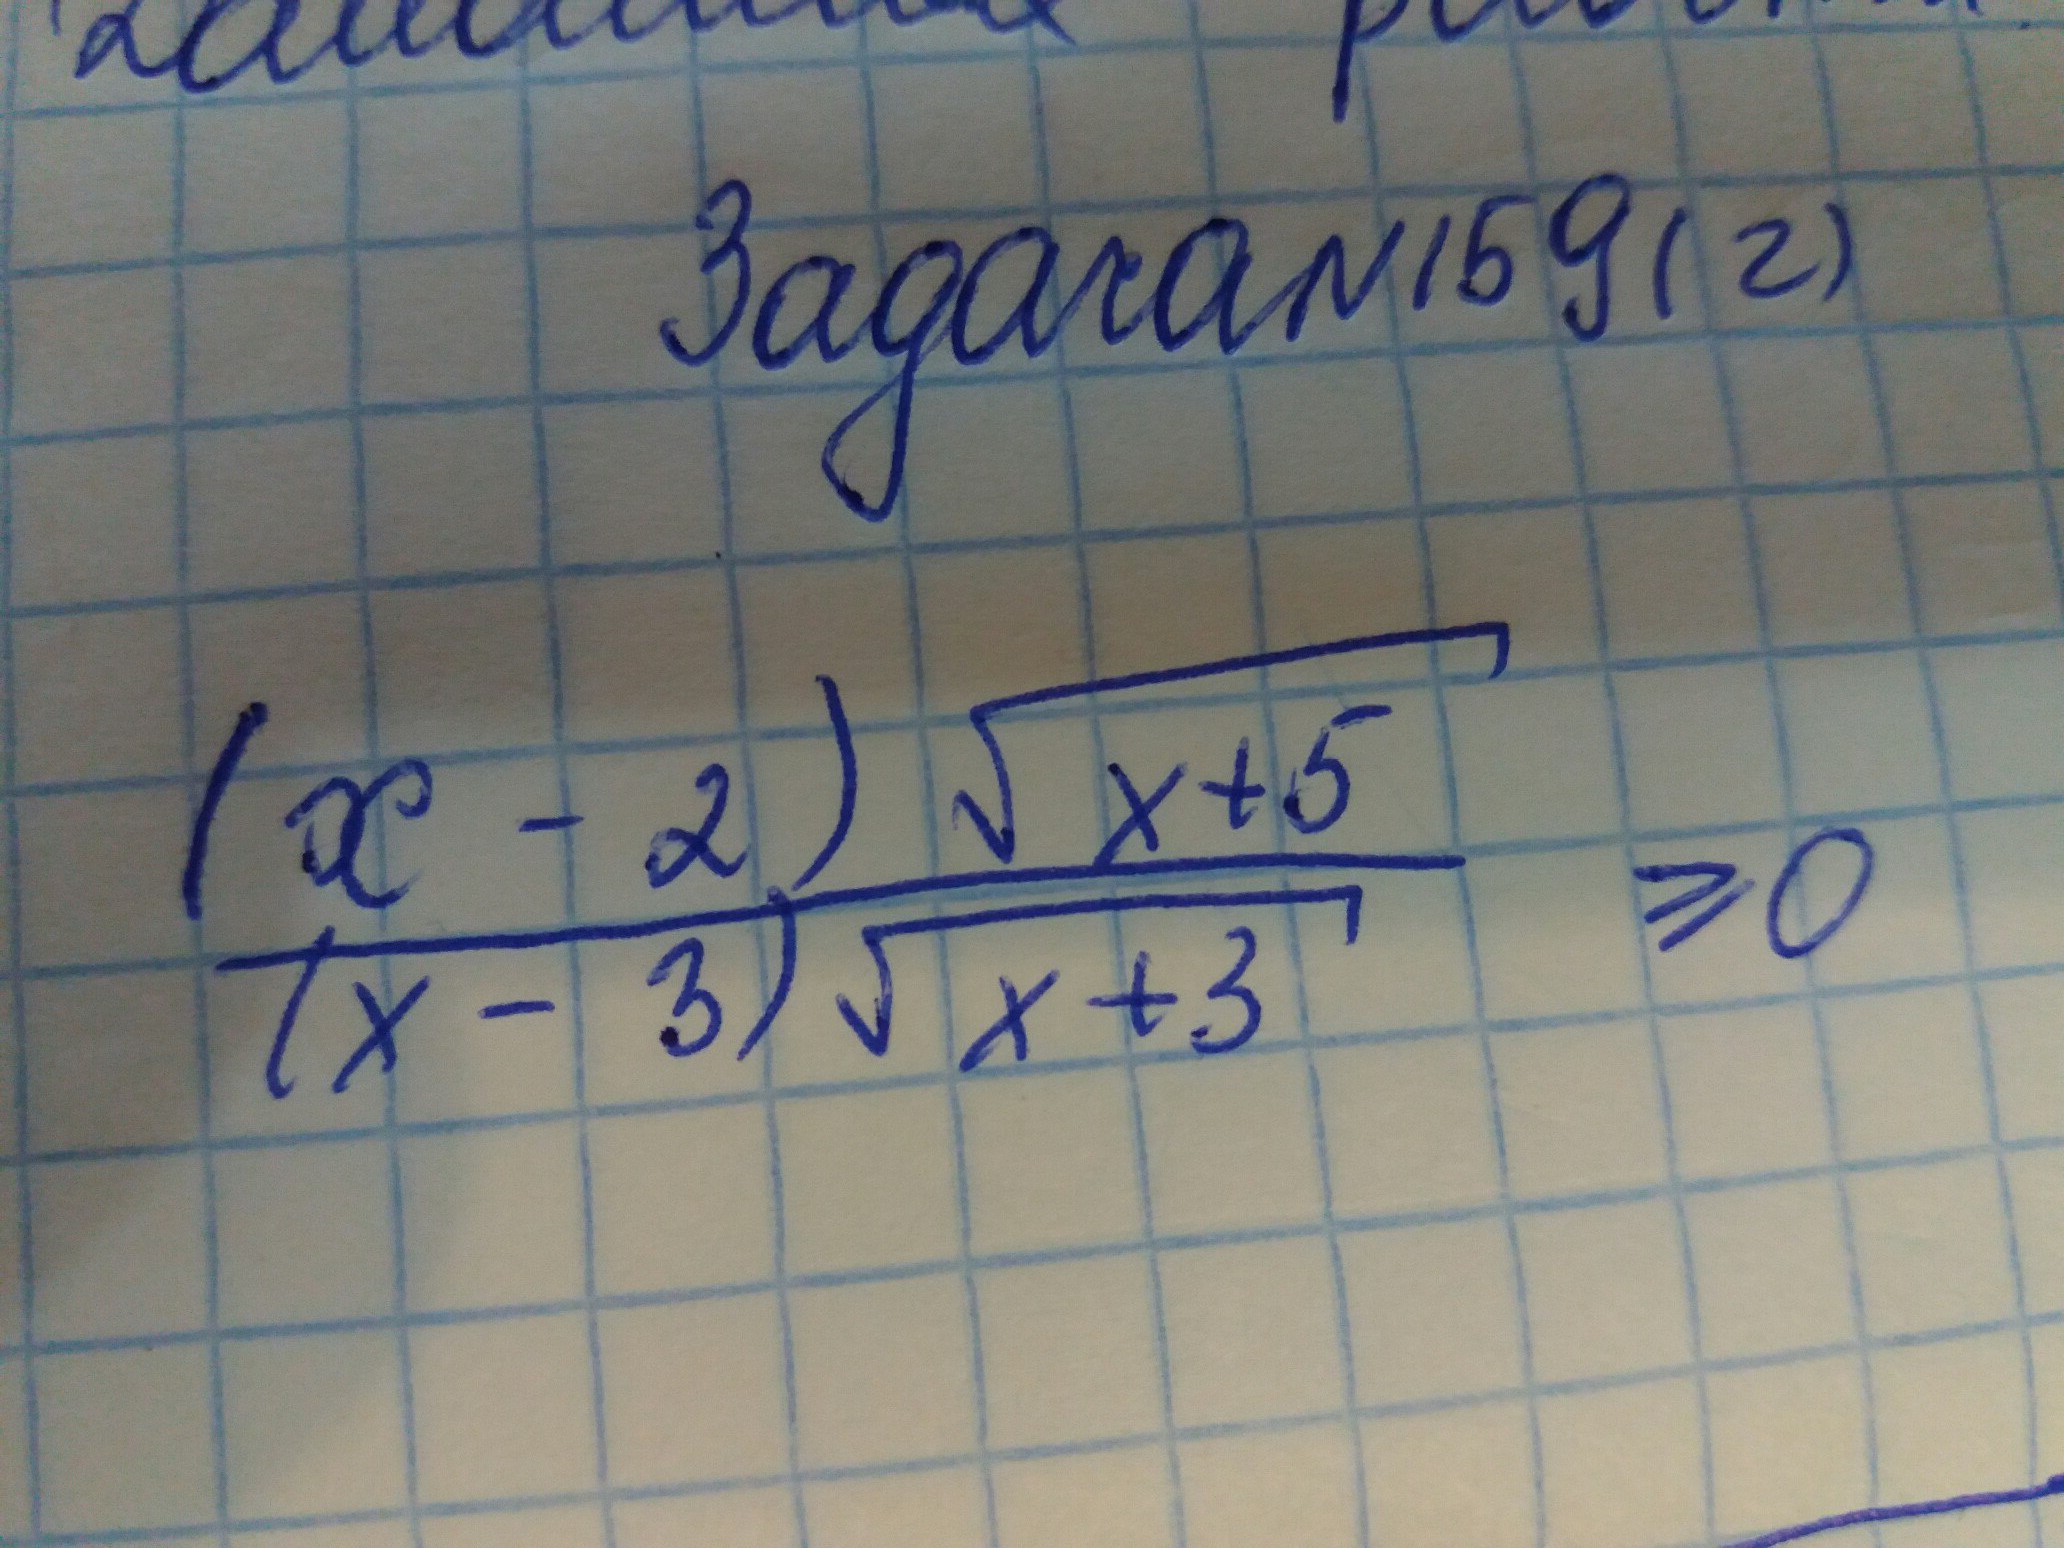 Задача N 159 (г)
(x - 2) √x+5
(x - 3) √x+3
≥ 0